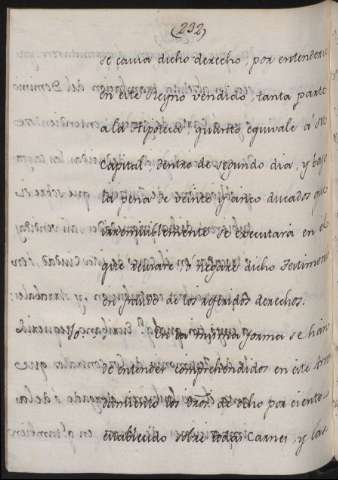 (292)
se causa dicho derecho, por entenderse
en este Reyno vendida, tanta parte
a la Hipoteca, quanto equivale a su
Capital, dentro de segundo dia, y bajo
la pena de veinte y cinco ducados que
irremisiblemente se executará en el
que retirare, o negare dicho Testimonio
en fraude de los referidos derechos.
En la misma forma se han
de entender comprehendidos en este Arren
damiento los dros. de ocho por ciento es
tablecido sobre todas Carnes, y las